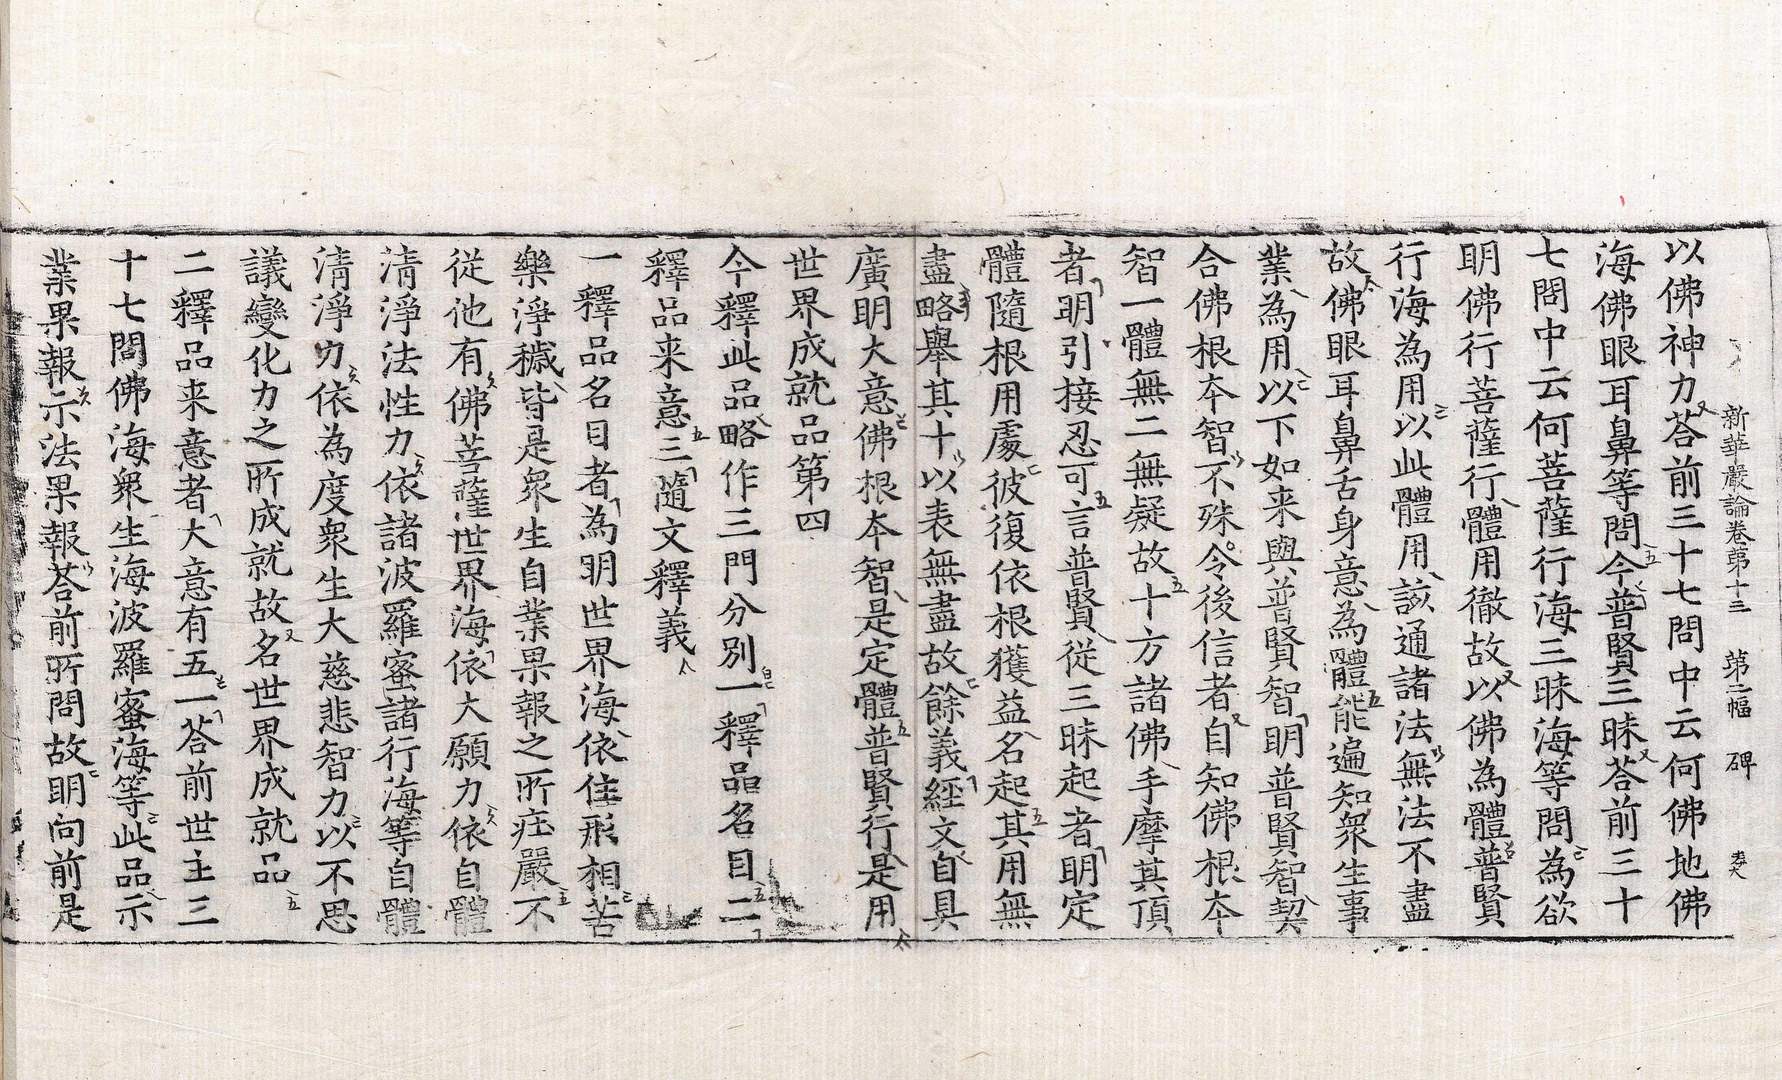 新華嚴論卷第十三　第二幅　碑
以佛神力荅前三十七問中云何佛地佛
海佛眼耳鼻等問今普賢三昧荅前三十
七問中云何菩薩行海三昧海等問為欲
明佛行菩薩行體用徹故以佛為體普賢
行海為用以此體用該通諸法無法不盡
故佛眼耳鼻舌身意為體能遍知衆生事
業為用以下如来與普賢智明普賢智契
合佛根本智不殊令後信者自知佛根本
智一體無二無疑故十方諸佛手摩其頂
者明引接忍可言普賢從三昧起者明定
體隨根用處彼復依根獲益名起其用無
盡略舉其十以表無盡故餘義經文自具
廣明大意佛根本智是定體普賢行是用
世界成就品第四
今釋此品略作三門分別一釋品名目二
釋品来意三隨文釋義
一釋品名目者為明世界海依住形相苦
樂淨穢皆是衆生自業果報之所莊嚴不
從他有佛菩薩世界海依大願力依自體
清淨法性力依諸波羅蜜諸行海等自體
清淨力依為度衆生大慈悲智力以不思
議變化力之所成就故名世界成就品
二釋品来意者大意有五一荅前世主三
十七問佛海衆生海波羅蜜海等此品示
業果報示法果報荅前所問故明向前是